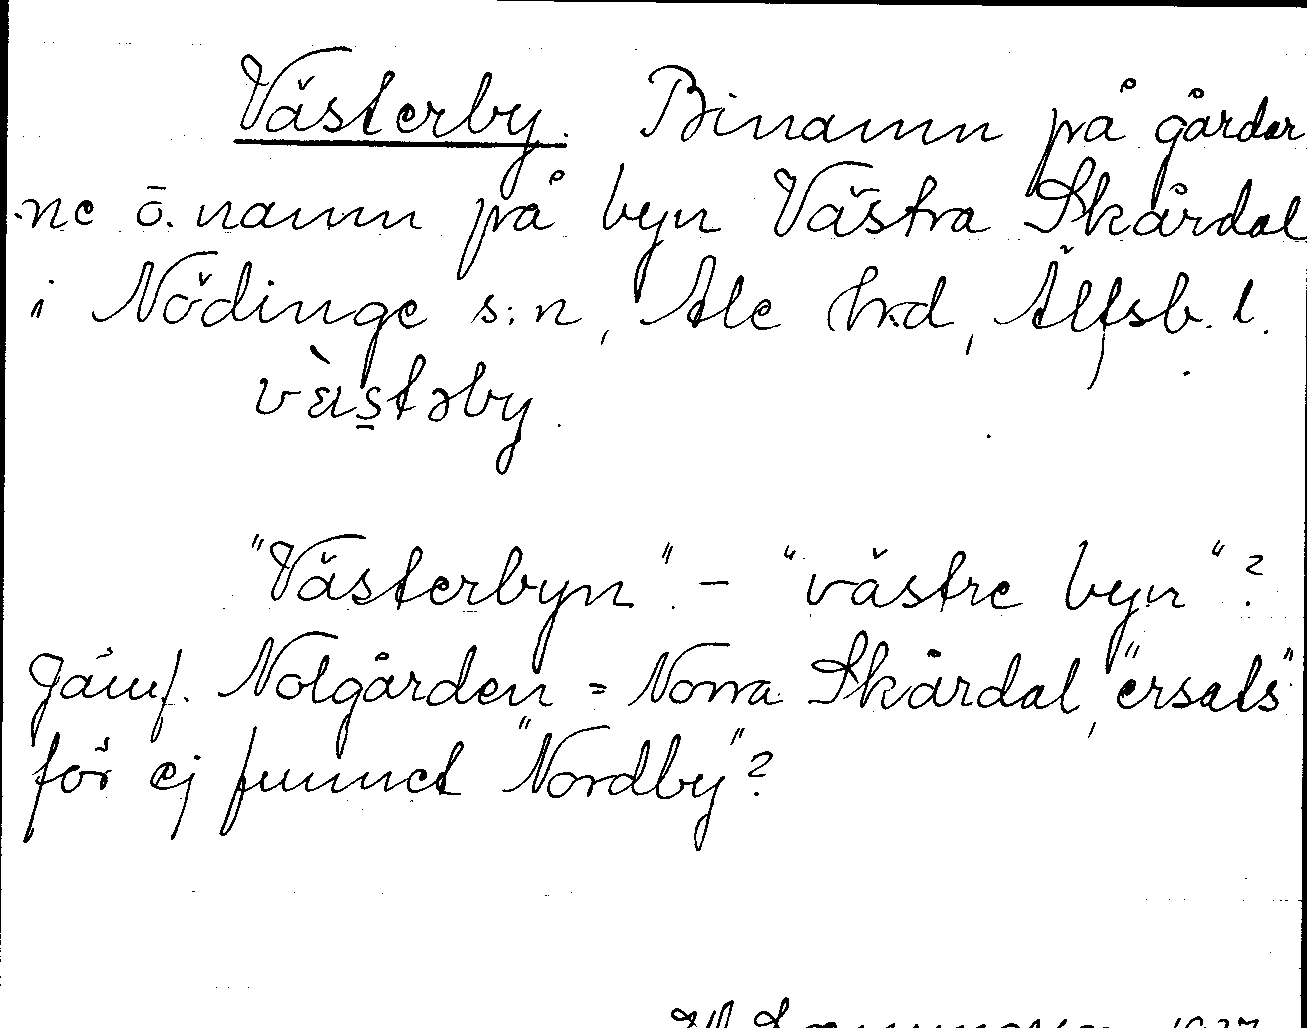 Västerby. Binamn på gårdar
ne o. namn på byn Västra Skårdal
i Nödinge s:n, Ale hrd, Älfsb. l.
vὲstəby.
"Västerbyn" - "västre byn"?
Jämf. Nolgården = Norra Skårdal, "ersats"
för ej funnet "Nordby"?